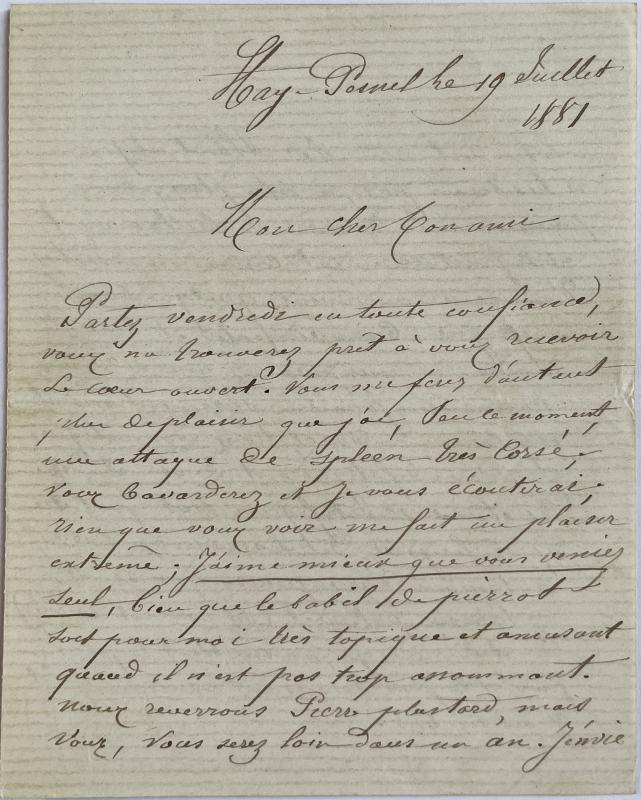 Hay-Posnel le 19 Juillet
1881
Mon cher bon ami
Partez vendredi en toute confiance,
vous me trouverez prêt à vous recevoir
le cœur ouvert. Vous me ferez d'autant
plus de plaisir que j'ai, dans le moment,
une attaque de spleen très corsé,
vous bavarderez et je vous écouterai,
rien que vous voir me fait un plaisir
extrême; J'aime mieux que vous veniez
seul, bien que le babil de pierrot
soit pour moi très topique et amusant
quand il n'est pas trop assommant.
nous reverrons Pierre plus tard, mais
vous, vous serez loin dans un an. J'envie